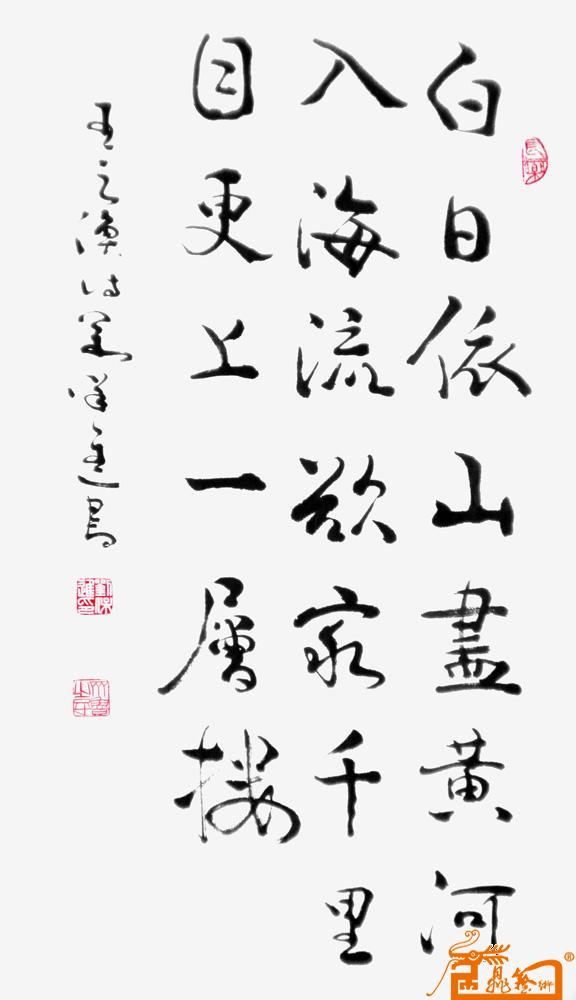 白日依山盡黄河
入海流欲窮千里
目更上一層樓
王之渙詩書